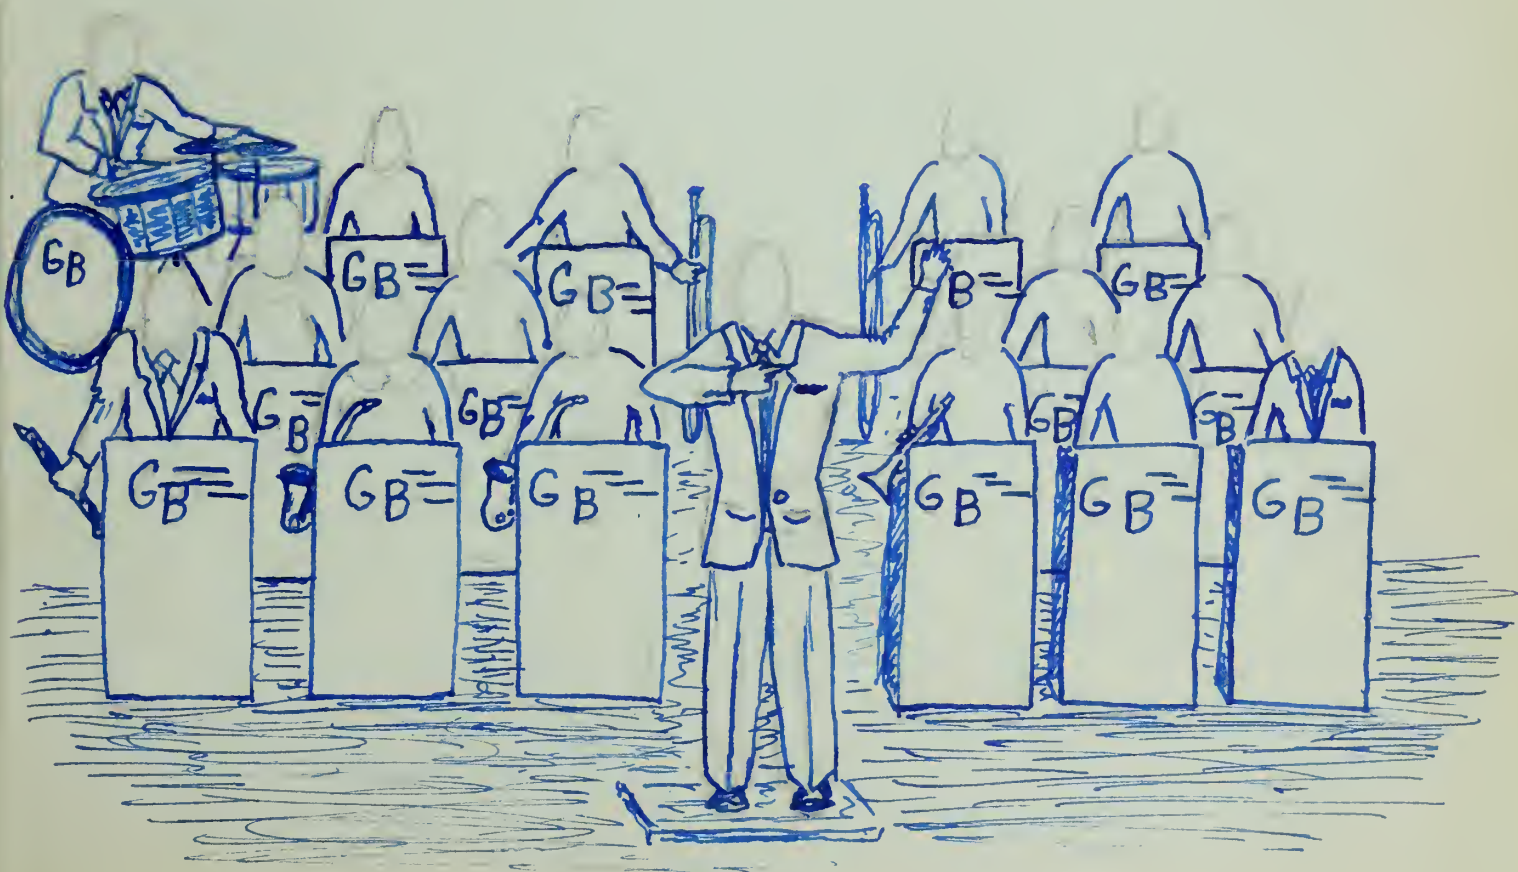 GB
GB
GB
B
GB
GB
GB
GB
GB
GB
GB
GB
GB
GB
GB